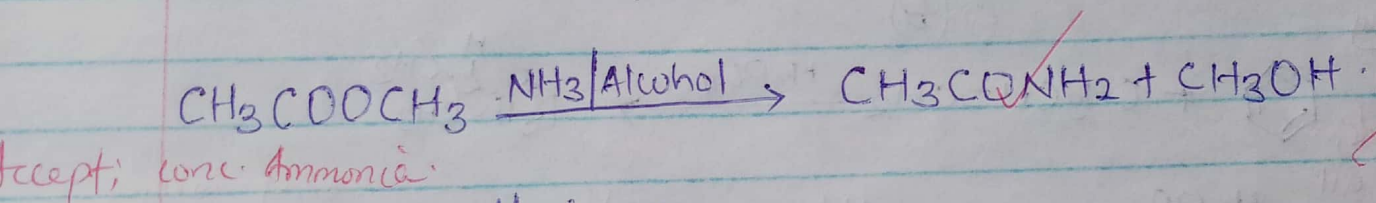 CH3COOCH3 NH3/Alcohol → CH3CONH2 + CH3OH.
Accept; conc. Ammonia.